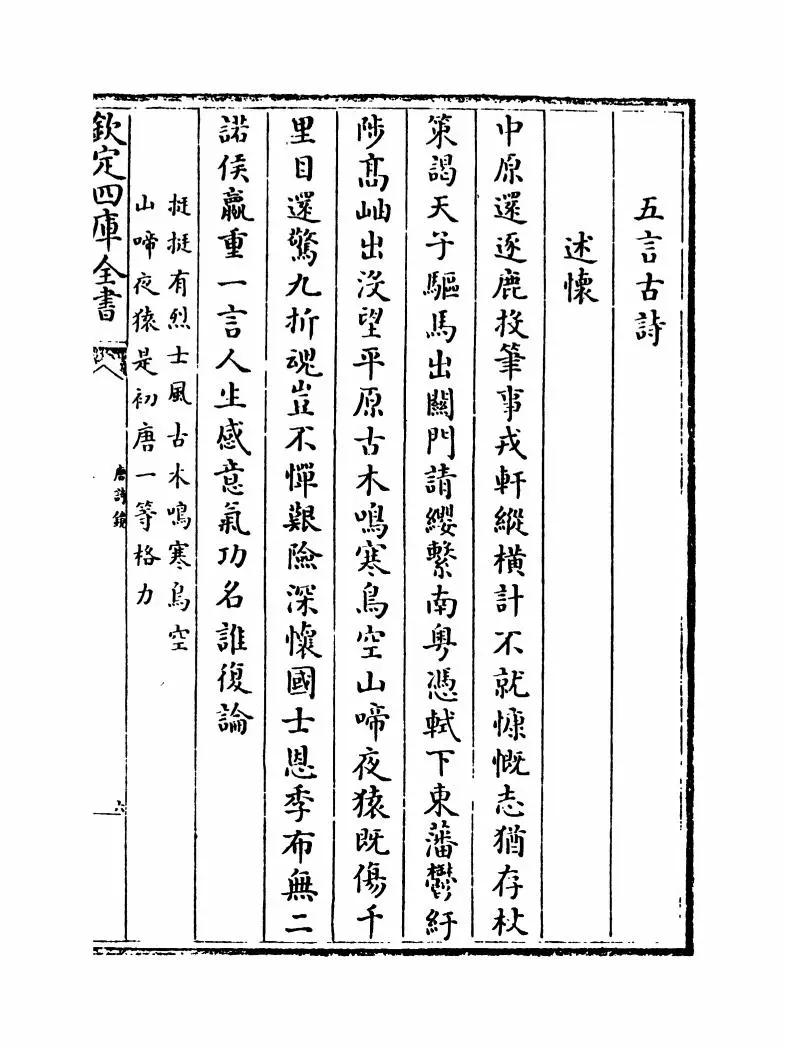 五言古詩
述懷
中原還逐鹿投筆事戎軒縱橫計不就慷慨志猶存杖
策謁天子驅馬出關門請纓繫南粤憑軾下東藩鬱紆
陟髙岫出沒望平原古木鳴寒鳥空山啼夜猿既傷千
里目還驚九折魂豈不憚艱險深懷國士恩季布無二
諾侯嬴重一言人生感意氣功名誰復論
挺挺有烈士風古木鳴寒鳥空
山啼夜猿是初唐一等格力
欽定四庫全書
唐詩鏡
六